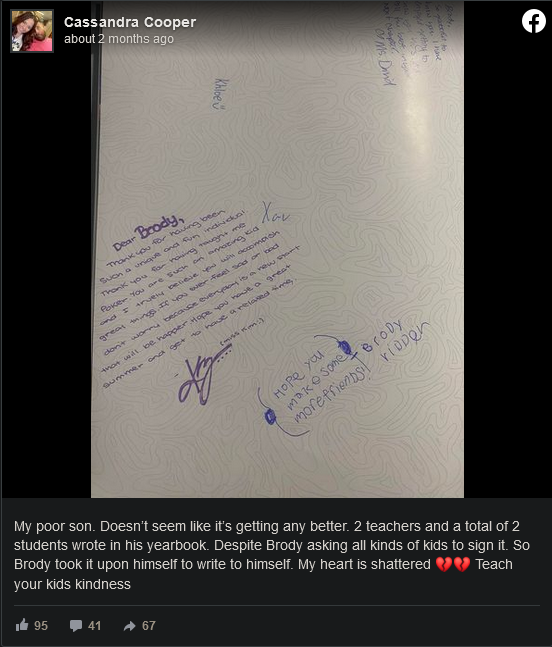 Cassandra Cooper
about 2 months ago
Mr. David
Khloe
Xav
Dear Brody,
Thank you for having been
such a unique and fun individual
Thank you for having taught me
Poker. You are such an amazing kid
and I truely believe you will accomplish
great things. If you ever feel sad or bad
don't worry because everyday is a new start
that will be happier. Hope you have a great
summer and get to have a relaxed time.
(miss Kim :)
Hope you
make some
more friends!
- Brody
ridder
My poor son. Doesn't seem like it's getting any better. 2 teachers and a total of 2
students wrote in his yearbook. Despite Brody asking all kinds of kids to sign it. So
Brody took it upon himself to write to himself. My heart is shattered 💔💔 Teach
your kids kindness
95 41 67